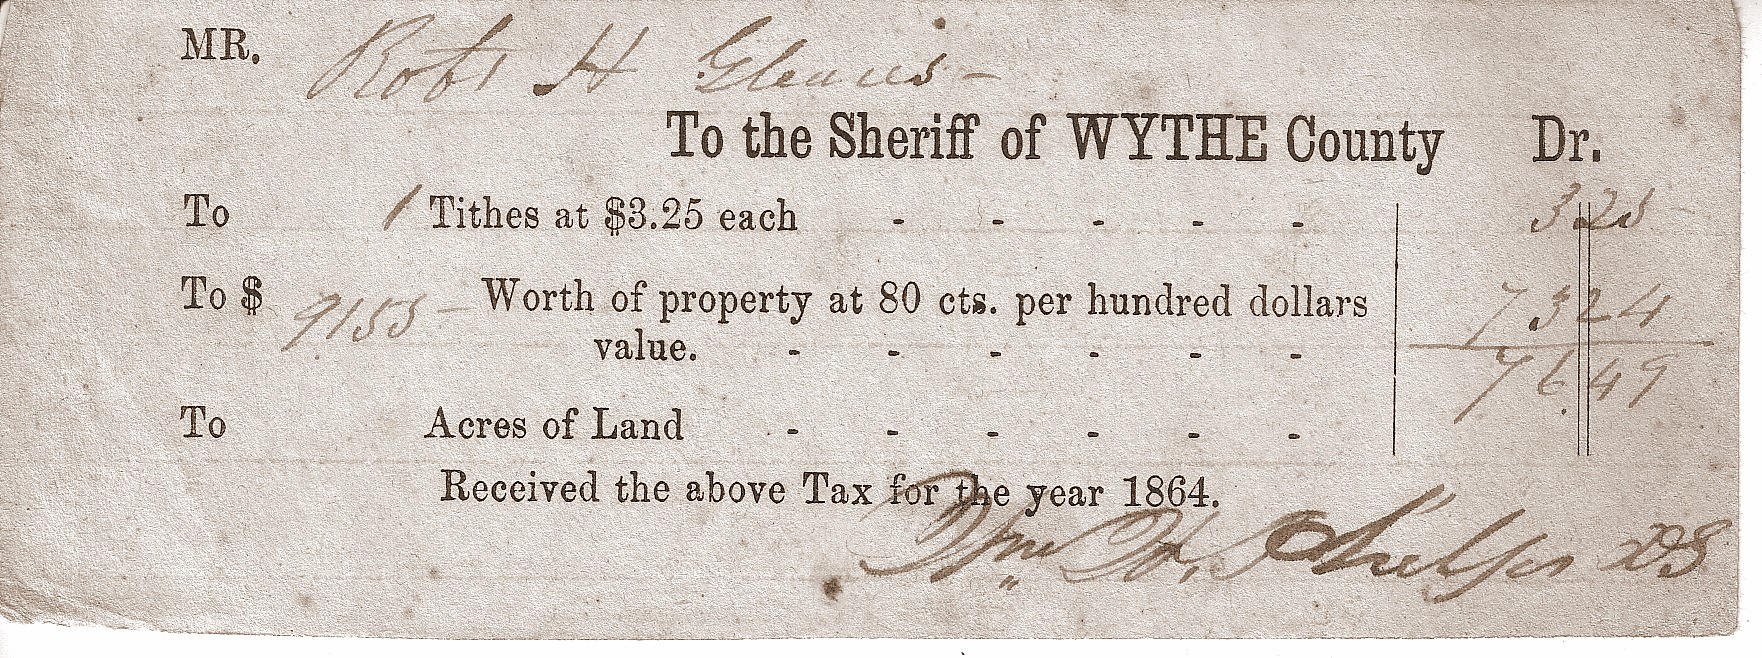 MR. Robt H Gleaves -
To the Sheriff of WYTHE County Dr.
To 1 Tithes at $3.25 each - - - - - 3 25
To $ 9155 - Worth of property at 80 cts. per hundred dollars 73 24
value. - - - - - - 76.49
To Acres of Land - - - - - -
Received the above Tax for the year 1864.
Wm. H. Phelps DS